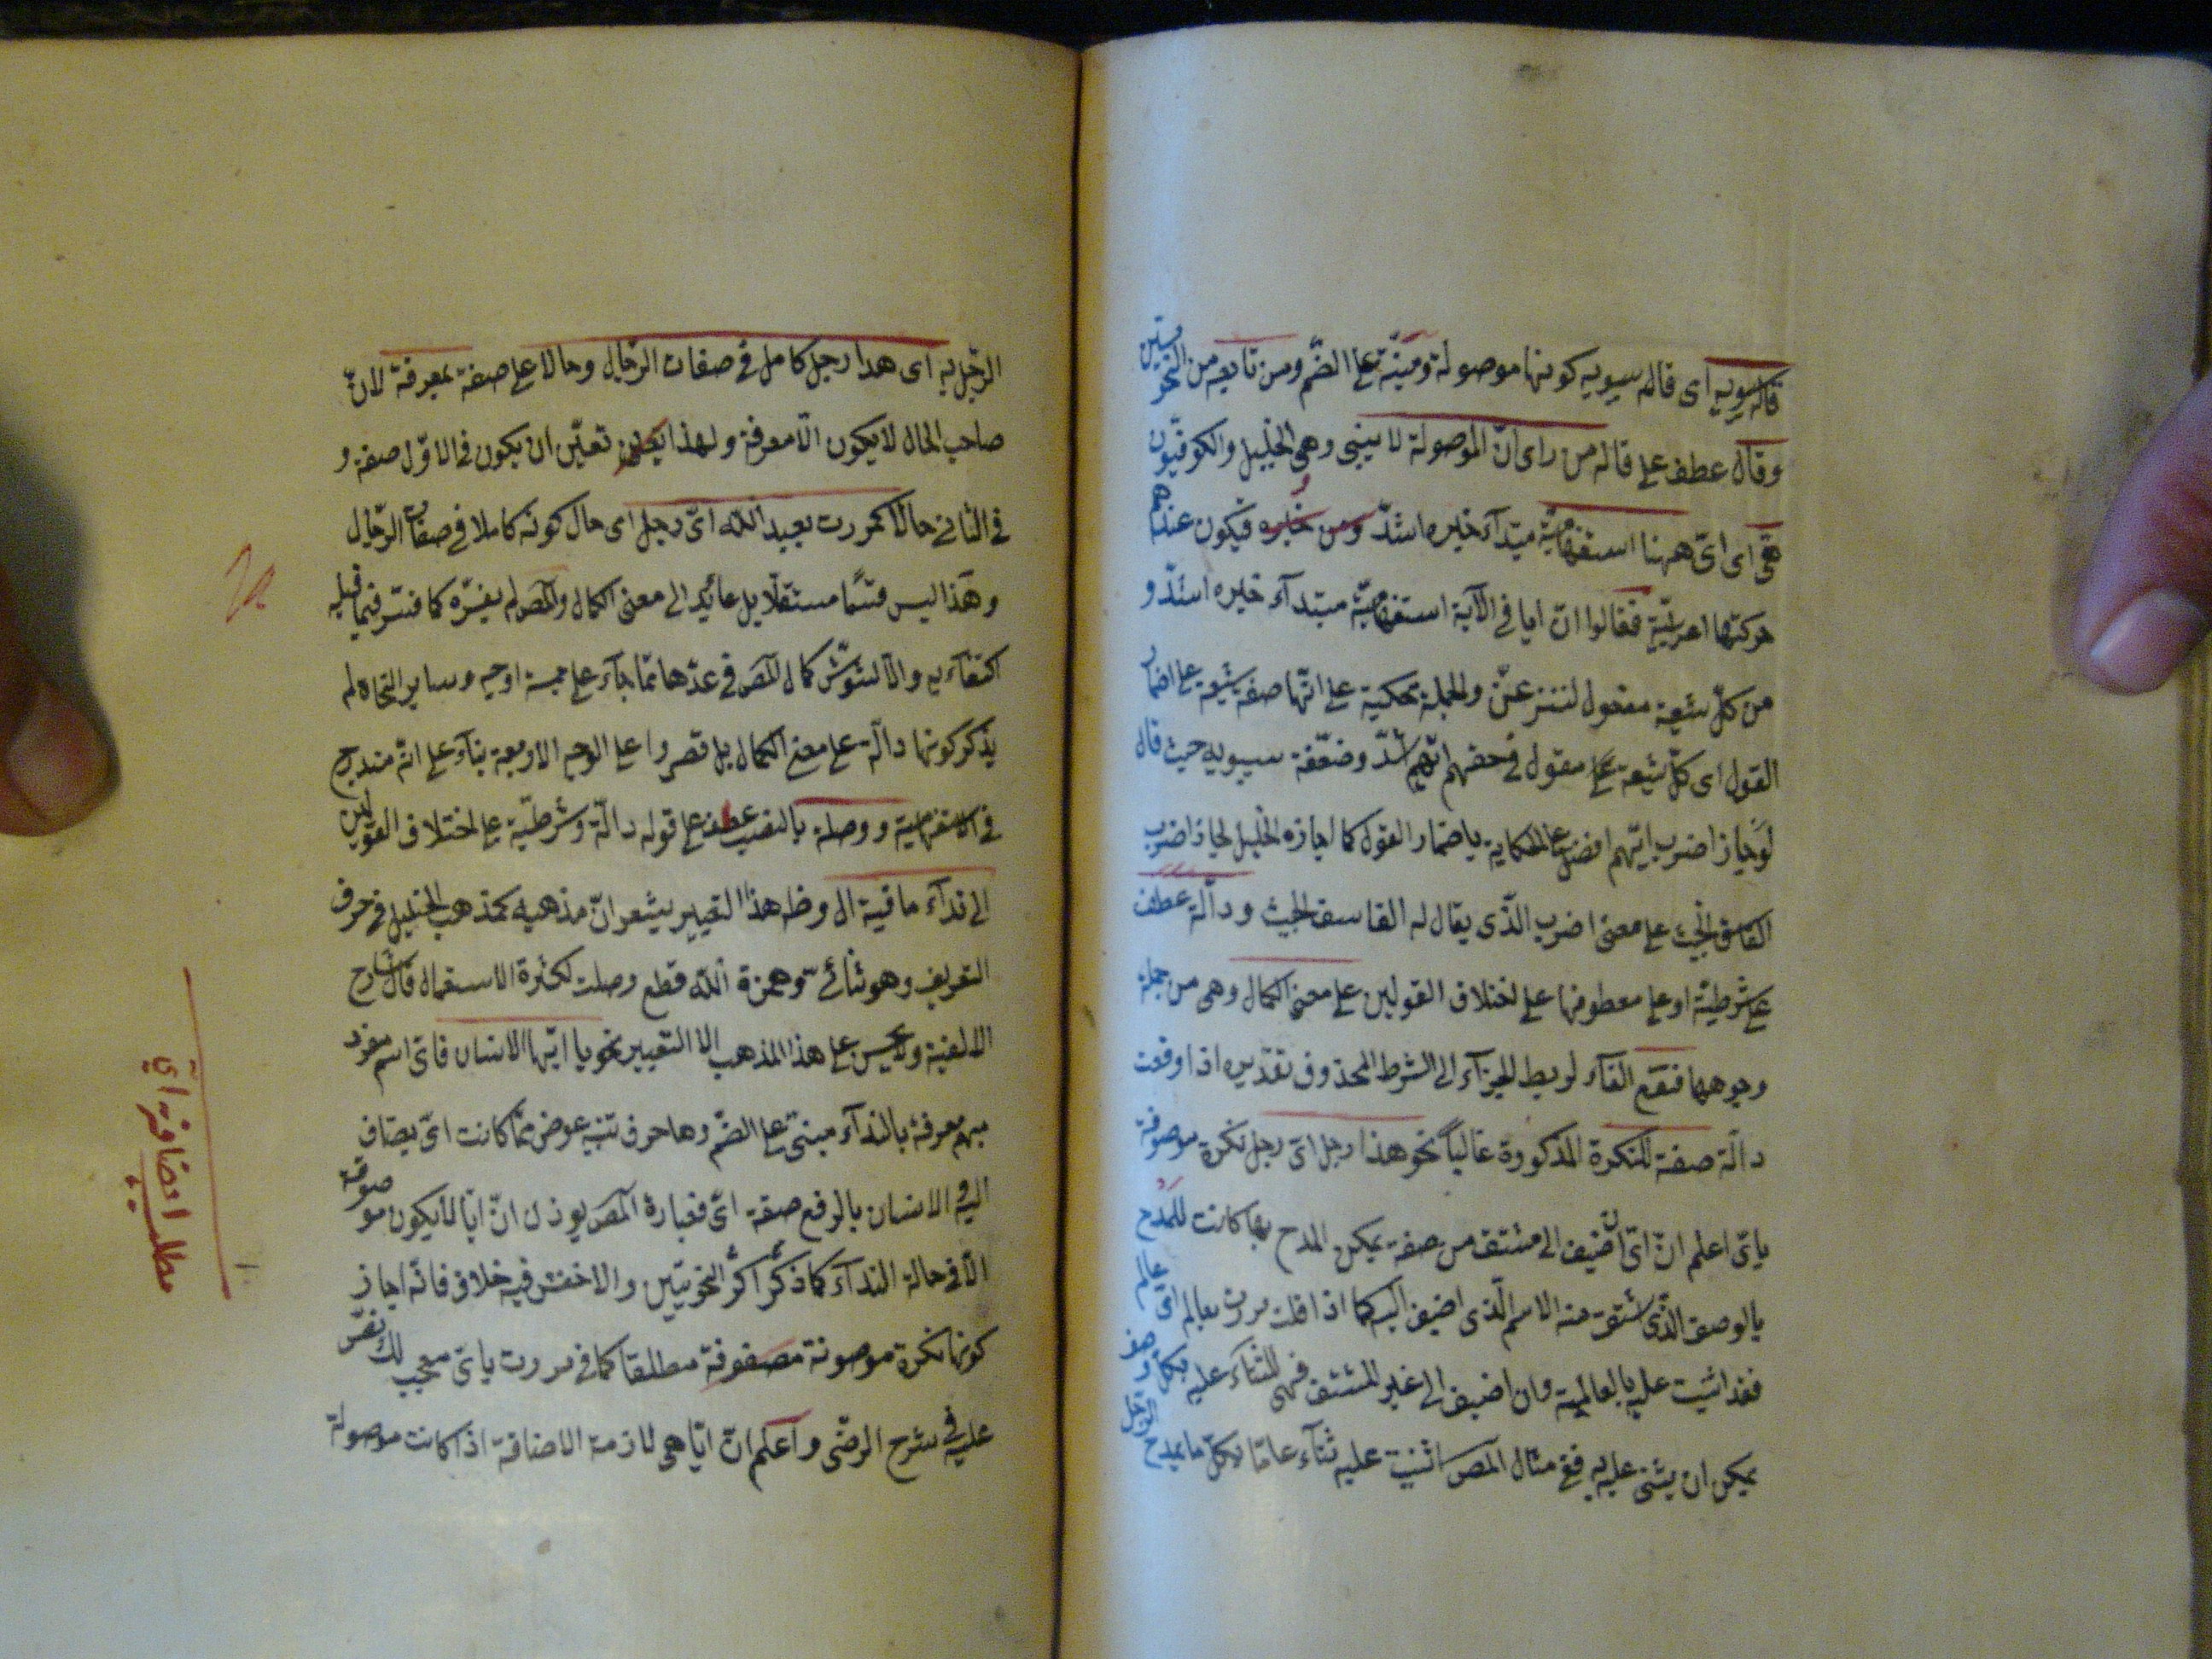 قاله سيبويه اى قاله سيبويه كونها موصولة ومبنيّة على الضّم ومن تابعه من النحويّين
وقال عطف على قاله من راى انّ الموصولة لا يبنى وهى الخليل والكوفيّون
هى اى اىّ ههنا استفهاميّة مبتدآء خبره اشدّ ومن خبره فيكون عندهم
حركتها اعرابيّة فقالوا انّ ايا فى الآية استفهاميّة مبتدآء خبره اشدّ و
من كلّ شيعة مفعول لننزعنّ والجملة محكية على انّها صفة شيعة على اضمار
القول اى كلّ شيعة مقول فى حقهم ايّهم اشدّ وضعّفه سيبويه حيث قال
لو جاز اضرب ايّهم افضل على الحكاية باضمار القول كما اجازه الخليل لجاز اضرب
الفاسق الخبيث على معنى اضرب الّذى يقال له الفاسق الخبيث ودالّة عطف
على شرطيّة او على معطوفها على اختلاف القولين على معنى الكمال وهى من جملة
وجوهها فتقع الفآء لربط الجزآء الى الشرط المحذوف تقديره اذا وقعت
دالّة صفة للنكرة المذكورة غالباً نحو هذا رجل اىّ رجل نكرة موصوفة
باىّ اعلم انّ اىّ ان اضيف الى مشتق من صفة يمكن المدح بها كانت للمدح
بالوصف الّذى اشتق منه الاسم الّذى اضيف اليه كما اذا قلت مررت بعالم اىّ عالم
فقد اثنيت عليه بالعالمية وان اضيف الى غير المشتق فهى للثناء عليه بكلّ وصف
يمكن ان يثنى عليه به ففى مثال المص اثنيت عليه ثنآء عامّا بكلّ ما يمدح الرجل
الرجل به اى هذا رجل كامل فى صفات الرجال وحالا على صفة بمعرفة لانّ
صاحب الحال لا يكون الّا معرفة ولهذا تعيّن ان يكون فى الاوّل صفة و
فى الثانى حالا كمررت بعبد الله اىّ رجل اى حال كونه كاملا فى صفات الرّجال
وهذا ليس قسمًا مستقلّا بل عائد الى معنى الكمال والمص لم يفسّره كما فسّر فيما قبله
اكتفآء به والّا لشوّش كمال المص فى عدّها ممّا جآء على خمسة اوجه وساير النحاة لم
يذكر كونها دالّة على معنى الكمال بل قصروا على الوجه الاربعة بنآء على انّه مندرج
فى الاستفهامية ووصلة بالنصب عطف على قوله دالّة وشرطيّة على اختلاف القولين
الى ندآء ما فيه ال وظ هذا التعبير يشعر انّ مذهبه كمذهب الخليل فى حرف
التعريف وهو ثنائىّ وهمزة الله قطع وصلت لكثرة الاستعمال قال شارح
الالفية ولا يحسن على هذا المذهب الا التعبير نحو يا ايّها الانسان فاىّ اسم مفرد
مبهم معرفة بالندآء مبنىّ على الضّم وها حرف تنبيه عوض ممّا كانت اىّ يضاف
اليه والانسان بالرفع صفة اىّ فعبارة المص يوذن انّ ايّا لا يكون موصوفة
الّا فى حالة الندآء كما ذكر اكثر النحويّين والاخفش فيه خلاف فانّه اجاز
كونها نكرة موصوفة مطلقا كما فى مررت باىّ معجب لك نصّ
عليه فى شرح الرضى واعلم انّ ايّا هى لازمة الاضافة اذا كانت موصولة
مطلب اضافة اي